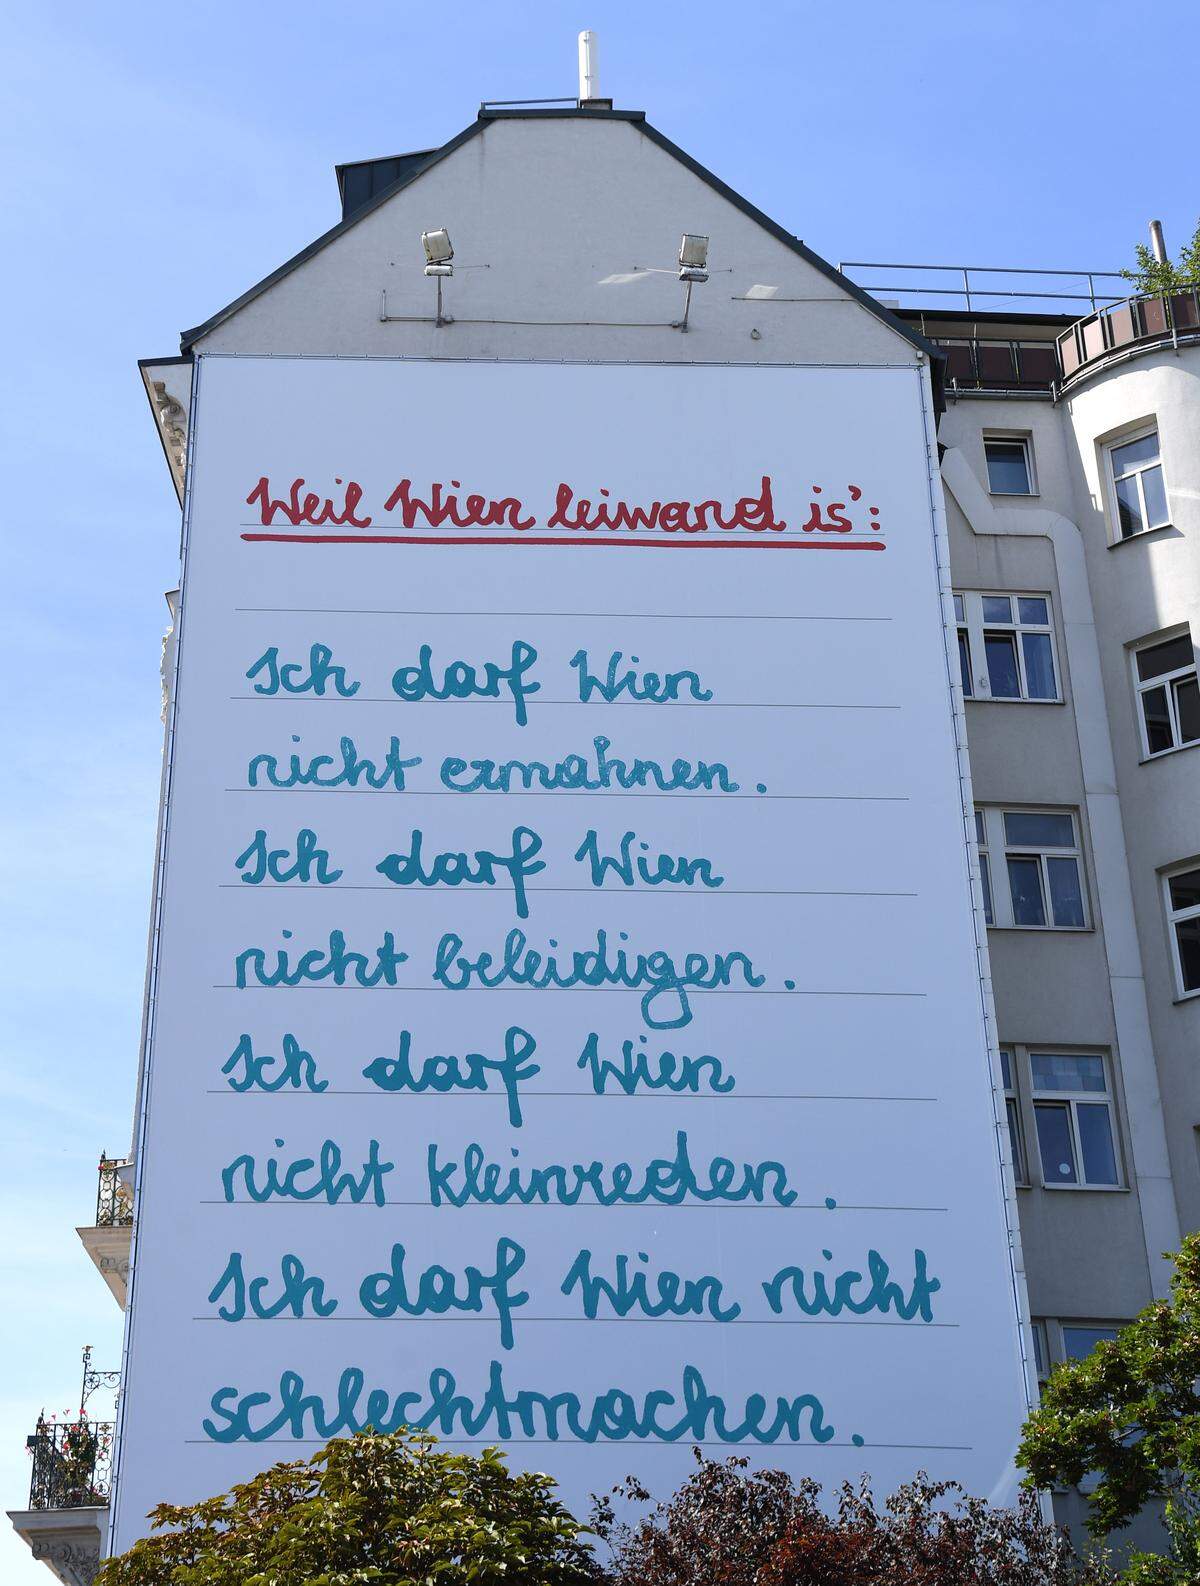 Weil Wien leiwand is':
Ich darf Wien
nicht ermahnen.
Ich darf Wien
nicht beleidigen.
Ich darf Wien
nicht kleinreden.
Ich darf Wien nicht
schlechtmachen.